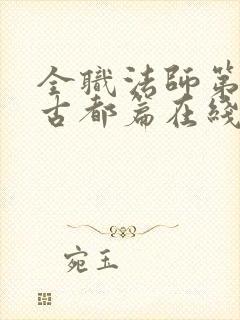 全職法師第
古都篇在綫
宛玉